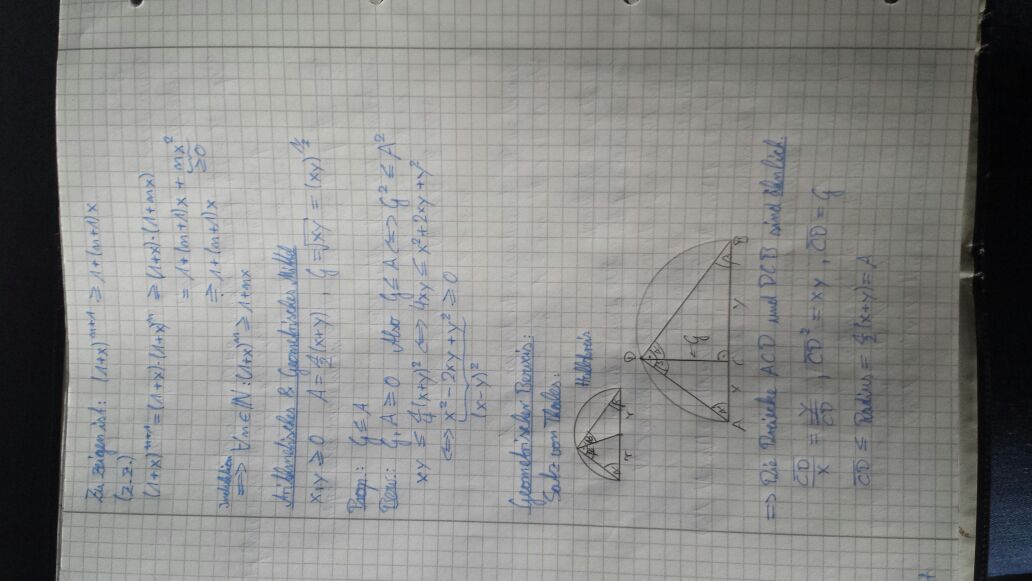 Zu zeigen ist: (1+x)^{n+1} ≥ 1+(n+1)x
(z.z.)
(1+x)^{n+1} = (1+x)·(1+x)^n ≥ (1+x)·(1+nx)
= 1+(n+1)x + nx²
≥0
≥ 1+(n+1)x
Induktion
⟹ ∀n∈ℕ: (1+x)^n ≥ 1+nx
Arithmetisches & Geometrisches Mittel
x,y ≥ 0 A = ½(x+y), G = √xy = (xy)^½
Prop: G ≤ A
Bew: G, A ≥ 0 Also G ≤ A ⟺ G² ≤ A²
xy ≤ ¼(x+y)² ⟺ 4xy ≤ x²+2xy+y²
⟺ x²-2xy+y² ≥ 0
(x-y)²
Geometrischer Beweis:
Satz von Thales:
Halbkreis
r r
D
α β
=G
α β
A x C y B
⟹ Die Dreiecke ACD und DCB sind ähnlich.
CD/x = y/CD, CD² = xy, CD = G
CD ≤ Radius = ½(x+y) = A